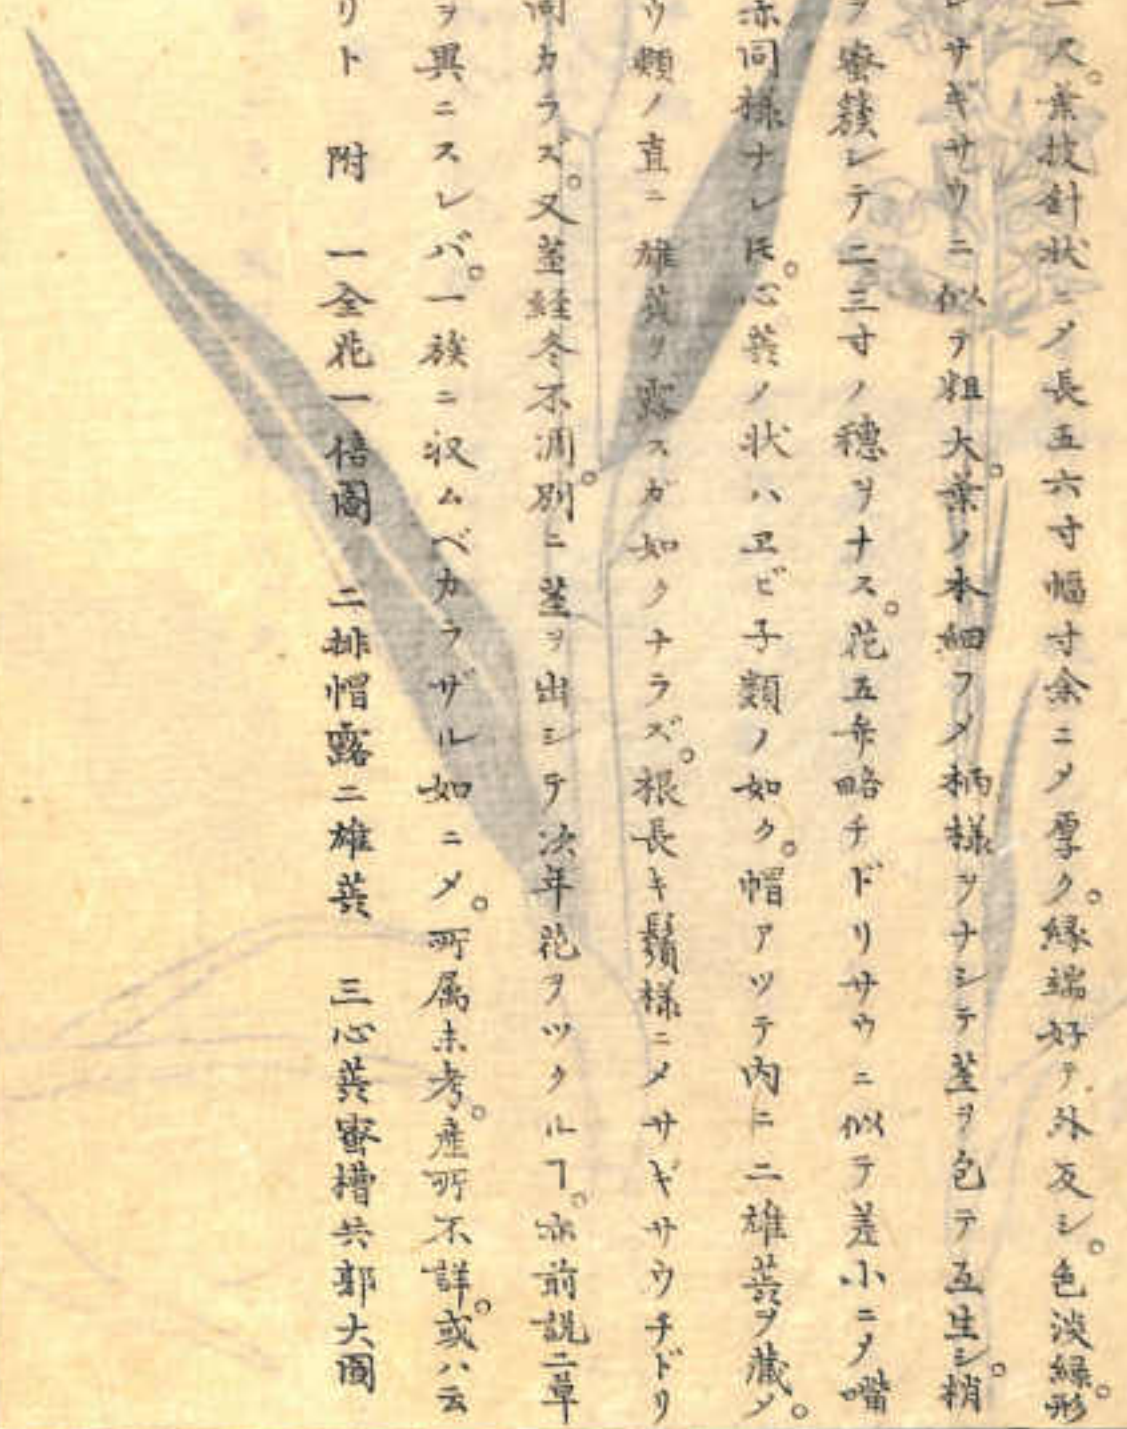 一尺。葉披針状ニ〆長五六寸幅寸余ニ〆厚ク。縁端好テ外反シ。色淡緑。形
サギサウニ似テ粗大。葉ノ本細フ〆柄様ヲナシテ茎ヲ包テ互生シ。梢
ヲ蜜簇シテ二三寸ノ穂ヲナス。花五弁略チドリサウニ似テ差小ニ〆嘴
亦同様ナレ𪜈。心蕋ノ状ハヱビ子類ノ如ク。帽アツテ内ニ二雄蕋ヲ蔵〆。
ウ類ノ直ニ雄蕋ヲ露スガ如クナラズ。根長キ鬚様ニ〆サギサウチドリ
カラズ。又茎経冬不凋。別ニ茎ヲ出シテ次年花ヲツクルヿ。亦前説二草
ヲ異ニスレバ。一族ニ収ムベカラザル如ニ〆。所属未考。産所不詳。或ハ云
リト　附　一全花一倍圖　二排帽露二雄蕋　三心蕋蜜槽共郭大圖